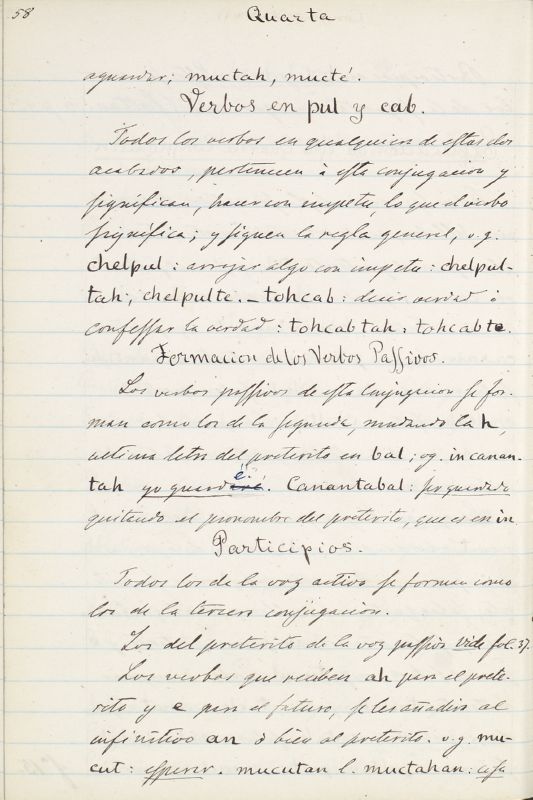 58
Quarta
aguardar; muctah, mucté.
Verbos en pul y cab.
Todos los verbos en qualquiera de estas dos
acabados, pertenecen à esta conjugacion y
significan, hacer con impetu, lo que el verbo
significa; y siguen la regla general, v.g.
chelpul: arrojar algo con impetu: chelpul-
tah; chelpulte. — tohcab: decir verdad ò
confessar la verdad: tohcabtah: tohcabte.
Formacion de los Verbos Passivos.
Los verbos passivos de esta conjugacion se for-
man como los de la segunda, mudando la h,
ultima letra del preterito en bal; vg. in canan-
tah yo guardé. Canantabal: ser guardado
quitando el pronombre del preterito, que es en in.
Participios.
Todos los de la voz activa se forman como
los de la tercera conjugacion.
Los del preterito de la voz passiva vide fol. 37.
Los verbos que reciben ah para el prete-
rito y e para el futuro, se les añadira al
infinitivo an ò bien al preterito. v.g. mu-
cut: esperar. mucutan l. muctahan: cosa